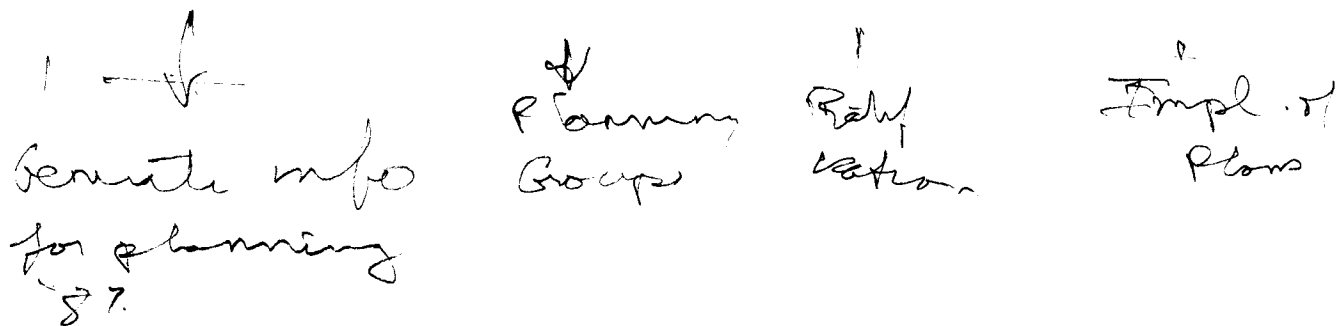 Generate info
for planning
'87.
Planning
Groups
Ratif
ication
Impl. of
Plans